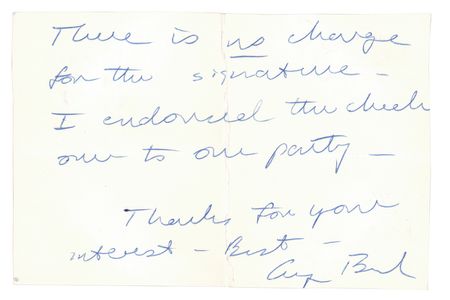 There is no charge
for the signature –
I endorsed the check
over to our party –
Thanks for your
interest – Best –